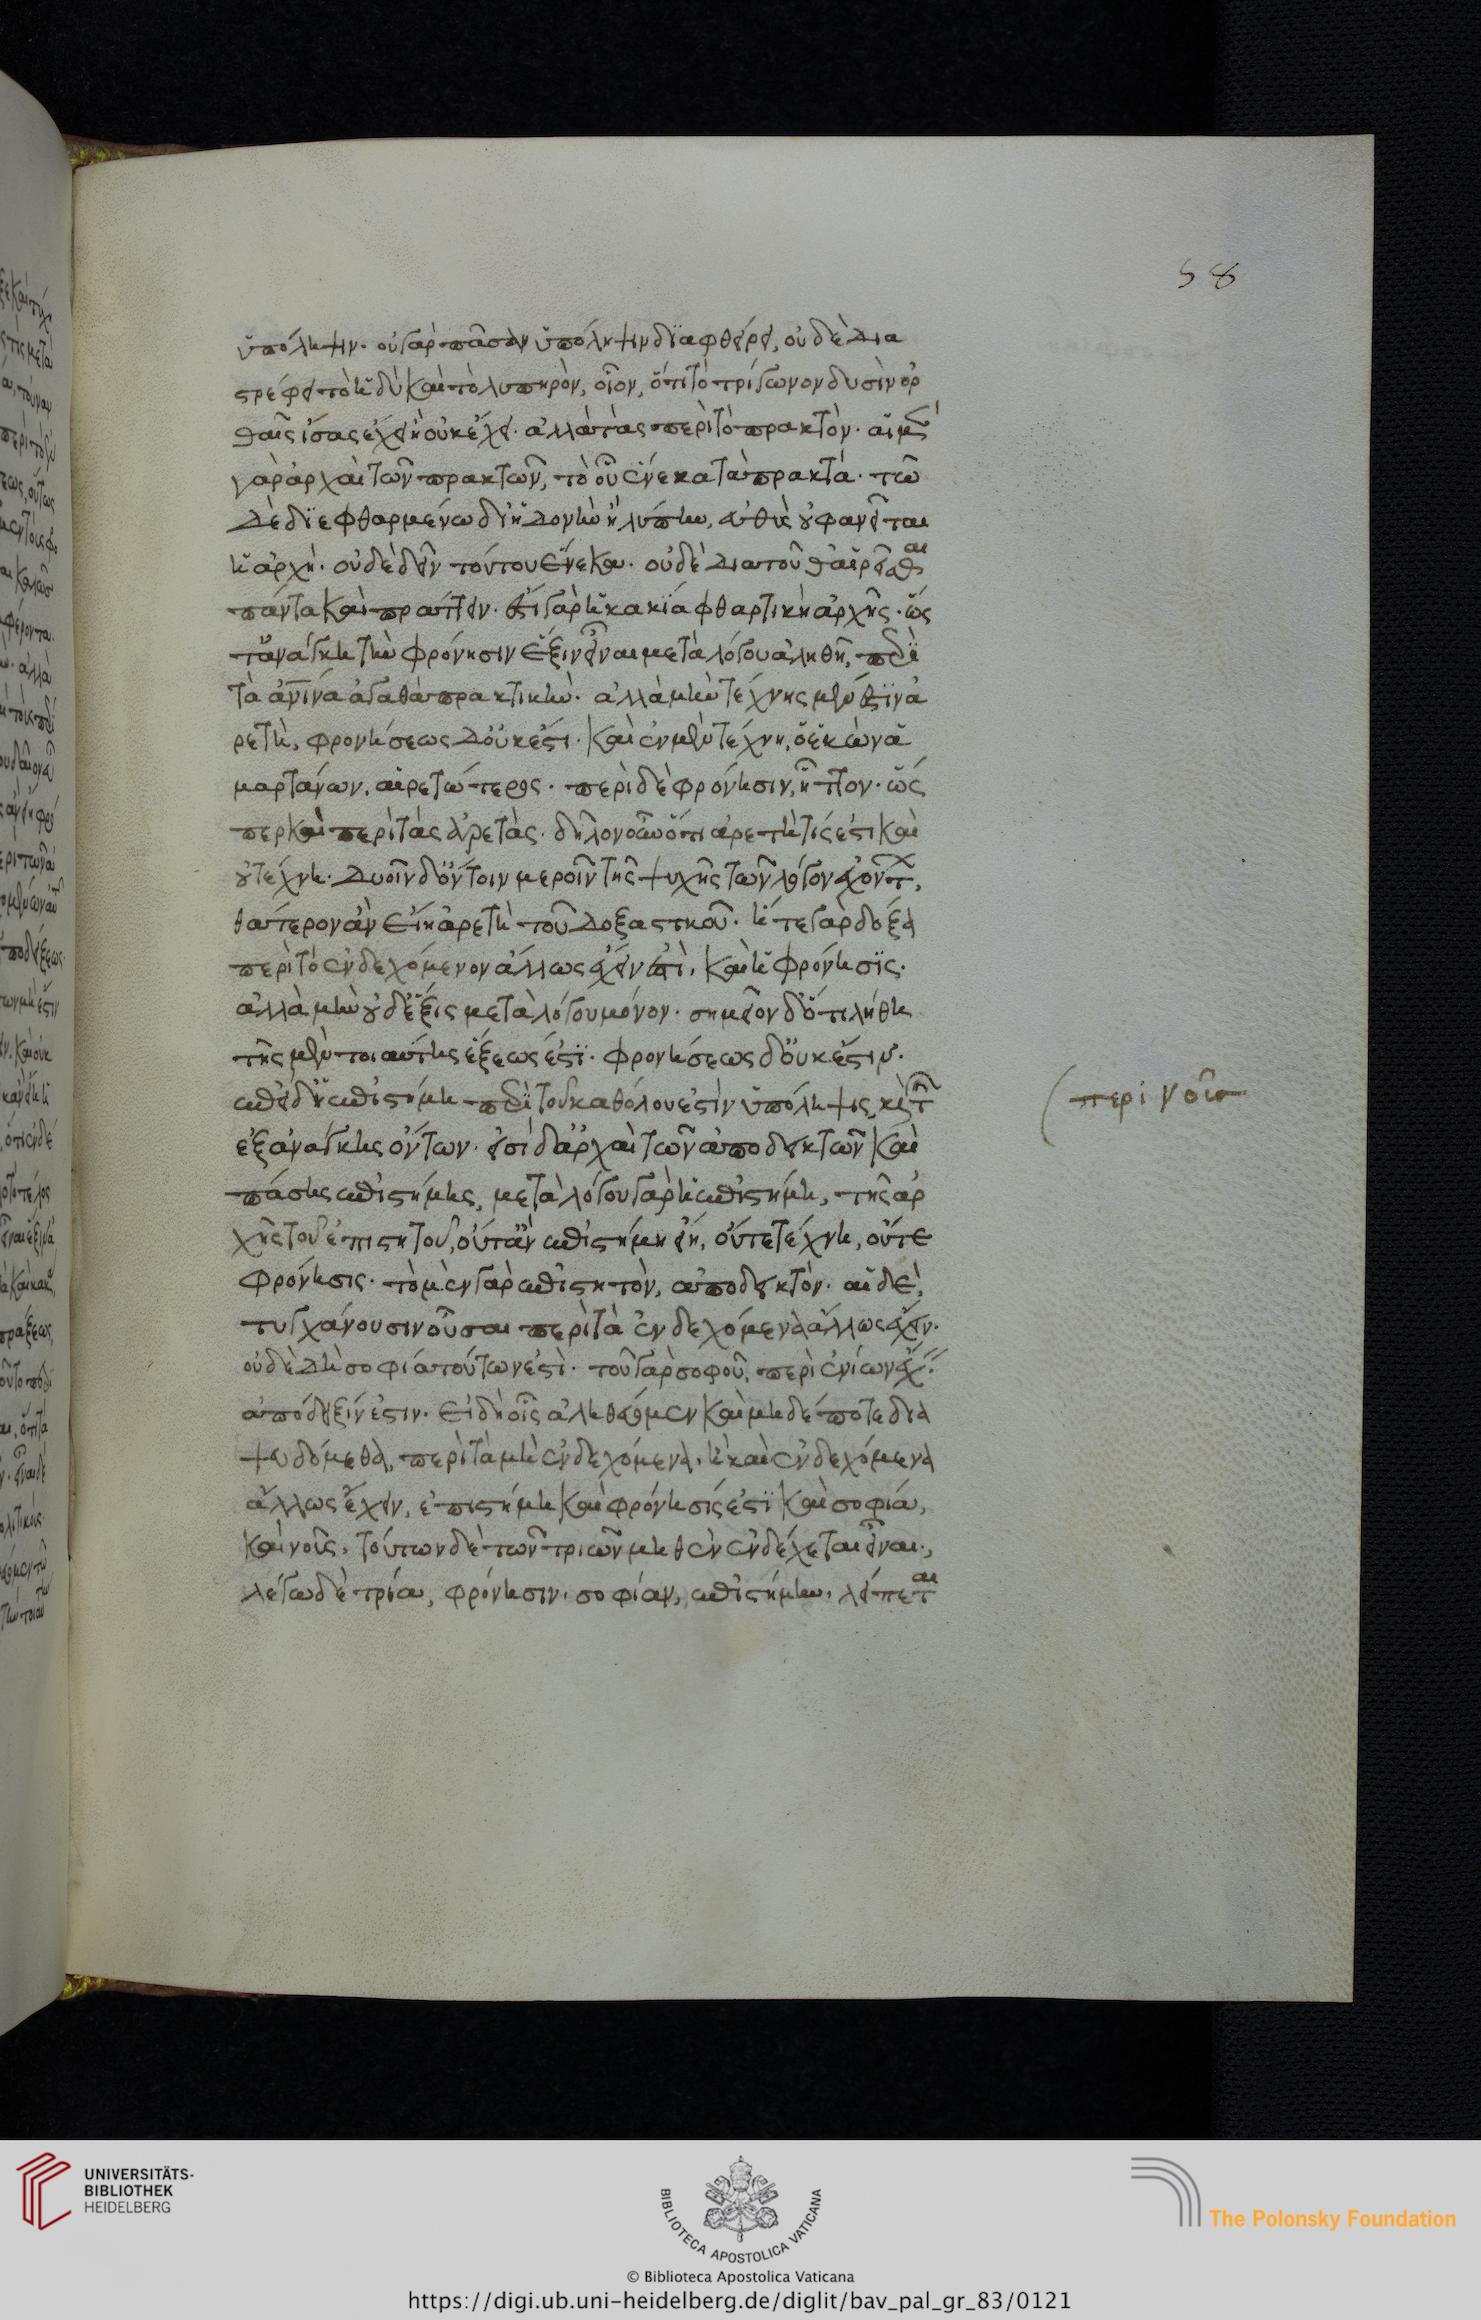 58
ὑπόληψιν. οὐ γὰρ πᾶσαν ὑπόληψιν διαφθείρει, οὐδὲ δια
στρέφει τὸ ἡδὺ καὶ τὸ λυπηρὸν, οἷον, ὅτι τὸ τρίγωνον δυσὶν ὀρ
θαῖς ἴσας ἔχει ἢ οὐκ ἔχει. ἀλλὰ τὰς περὶ τὸ πρακτόν. αἱ μὲν
γὰρ ἀρχαὶ τῶν πρακτῶν, τὸ οὗ ἕνεκα τὰ πρακτά. τῶ
δὲ διεφθαρμένω δι' ἡδονὴν ἢ λύπην, εὐθὺς οὐ φανεῖται
ἡ ἀρχή. οὐδὲ δεῖν τούτου ἕνεκα. οὐδὲ διὰ τοῦθ' αἱρεῖσθαι
πάντα καὶ πράττειν. ἔστι γὰρ ἡ κακία φθαρτικὴ ἀρχῆς. ὥς
τ' ἀνάγκη τὴν φρόνησιν ἕξιν εἶναι μετὰ λόγου ἀληθῆ, περὶ
τὰ ἀνθρώπινα ἀγαθὰ πρακτικήν. ἀλλὰ μὴν τέχνης μὲν ἔστιν ἀ
ρετὴ, φρονήσεως δ' οὐκ ἔστι. καὶ ἐν μὲν τέχνη, ὁ ἑκὼν ἁ
μαρτάνων, αἱρετώτερος. περὶ δὲ φρόνησιν, ἧττον. ὥς
περ καὶ περὶ τὰς ἀρετάς. δῆλον οὖν ὅτι ἀρετή τίς ἐστι καὶ
οὐ τέχνη. δυοῖν δ' ὄντοιν μεροῖν τῆς ψυχῆς τῶν λόγον ἐχόντων,
θατέρου ἂν εἴη ἀρετὴ τοῦ δοξαστικοῦ. ἥ τε γὰρ δόξα
περὶ τὸ ἐνδεχόμενον ἄλλως ἔχειν ἐστὶ, καὶ ἡ φρόνησις.
ἀλλὰ μὴν οὐδ' ἕξις μετὰ λόγου μόνον. σημεῖον δ' ὅτι λήθη
τῆς μὲν τοιαύτης ἕξεως ἔστι. φρονήσεως δ' οὐκ ἔστιν.
ἐπεὶ δ' ἡ ἐπιστήμη περὶ τοῦ καθόλου ἐστὶν ὑπόληψις καὶ τῶν
ἐξ ἀνάγκης ὄντων. εἰσὶ δ' ἀρχαὶ τῶν ἀποδεικτῶν καὶ
πάσης ἐπιστήμης, μετὰ λόγου γὰρ ἡ ἐπιστήμη, τῆς ἀρ
χῆς τοῦ ἐπιστητοῦ, οὔτ' ἂν ἐπιστήμη εἴη, οὔτε τέχνη, οὔτε
φρόνησις. τὸ μὲν γὰρ ἐπιστητὸν, ἀποδεικτόν. αἱ δὲ,
τυγχάνουσιν οὖσαι περὶ τὰ ἐνδεχόμενα ἄλλως ἔχειν.
οὐδὲ δὴ σοφία τούτων ἐστί. τοῦ γὰρ σοφοῦ, περὶ ἐνίων ἔχειν
ἀπόδειξίν ἐστιν. εἰ δὴ οἷς ἀληθεύομεν καὶ μηδέποτε δια
ψευδόμεθα, περὶ τὰ μὴ ἐνδεχόμενα, ἢ καὶ ἐνδεχόμενα
ἄλλως ἔχειν, ἐπιστήμη καὶ φρόνησίς ἐστι καὶ σοφία,
καὶ νοῦς. τούτων δὲ τῶν τριῶν μηθὲν ἐνδέχεται εἶναι,
λέγω δὲ τρία, φρόνησιν, σοφίαν, ἐπιστήμην, λείπεται
περὶ νοῦ
UNIVERSITÄTS-
BIBLIOTHEK
HEIDELBERG
BIBLIOTECA APOSTOLICA VATICANA
The Polonsky Foundation
© Biblioteca Apostolica Vaticana
https://digi.ub.uni-heidelberg.de/diglit/bav_pal_gr_83/0121